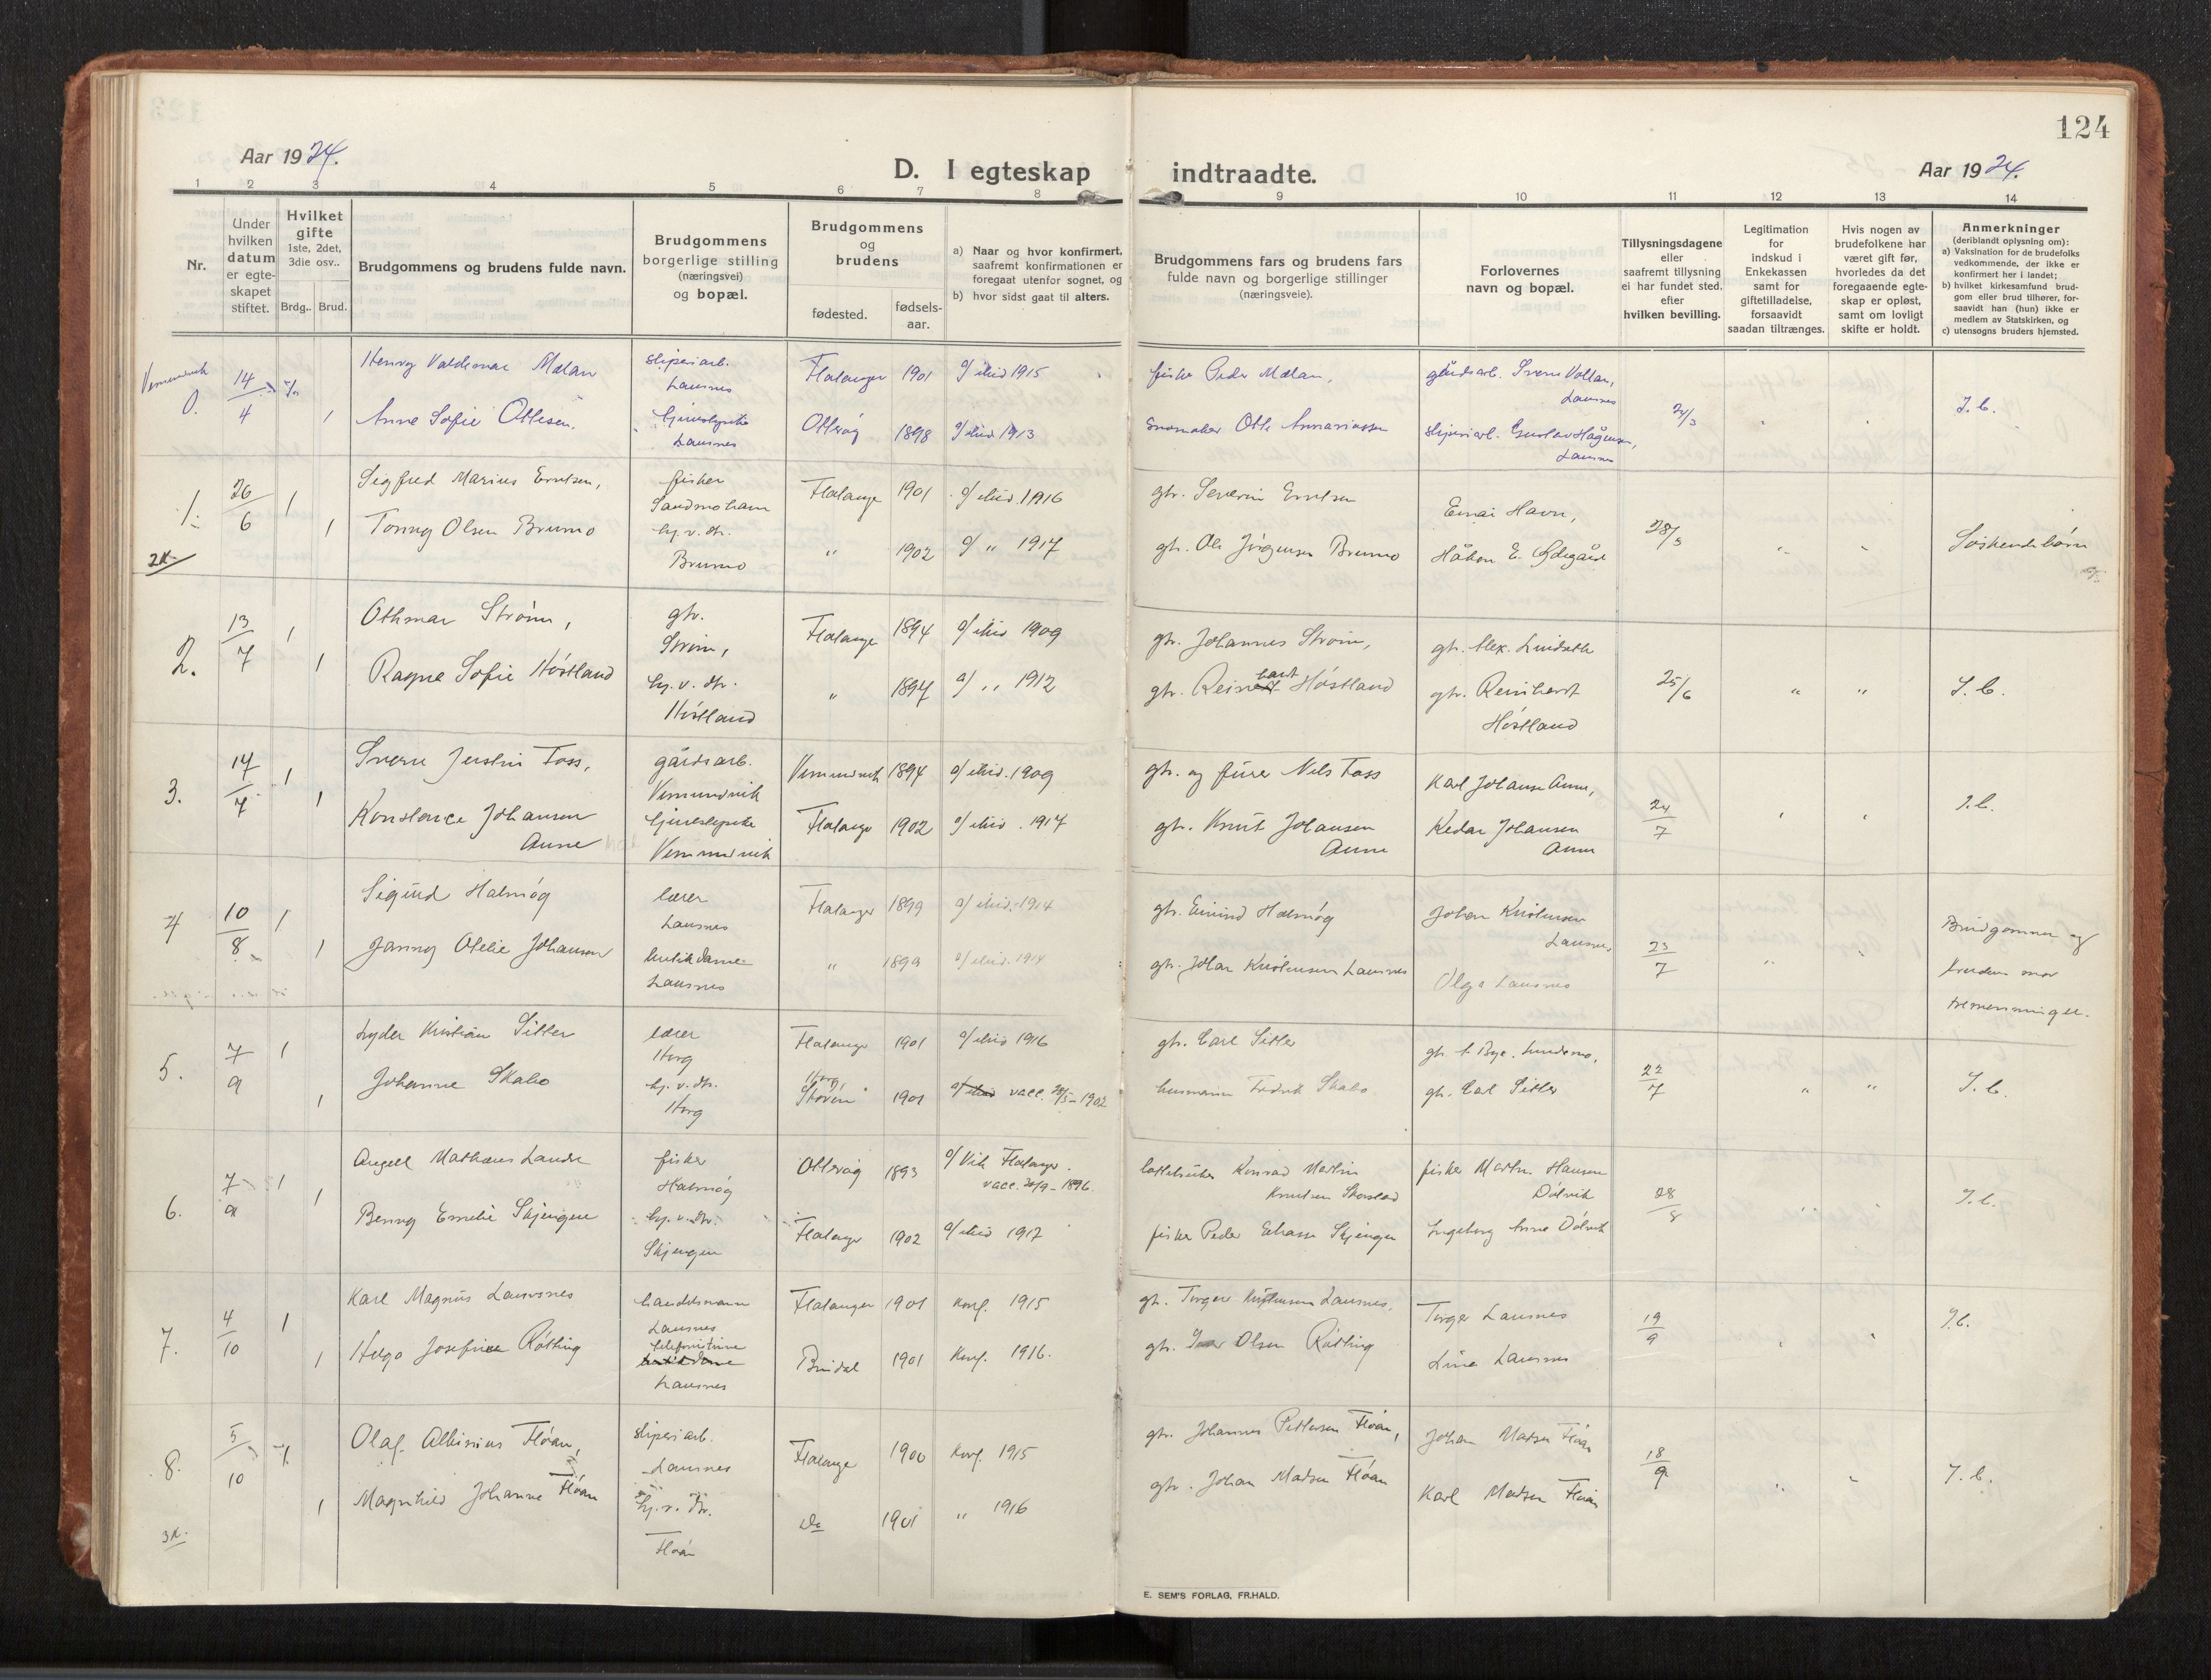 124
Aar 1924.
D. I egteskap indtraadte.
Aar 1924.
1 2 3 4 5 6 7 8 9 10 11 12 13 14
Nr.
Under hvilken datum er egte-skapet stiftet.
Hvilket gifte
1ste, 2det, 3die osv..
Brdg.. Brud.
Brudgommens og brudens fulde navn.
Brudgommens borgerlige stilling (næringsvei) og bopæl.
Brudgommens og brudens
fødested. fødsels-aar.
a) Naar og hvor konfirmert, saafremt konfirmationen er foregaat utenfor sognet, og
b) hvor sidst gaat til alters.
Brudgommens fars og brudens fars fulde navn og borgerlige stillinger (næringsveie).
Forlovernes navn og bopæl.
Tillysningsdagene eller saafremt tillysning ei har fundet sted, efter hvilken bevilling.
Legitimation for indskud i Enkekassen samt for giftetilladelse, forsaavidt saadan tiltrænges.
Hvis nogen av brudefolkene har været gift før, hvorledes da det foregaaende egte-skap er opløst, samt om lovligt skifte er holdt.
Anmerkninger
(deriblandt oplysning om):
a) Vaksination for de brudefolks vedkommende, der ikke er konfirmert her i landet;
b) hvilket kirkesamfund brud-gom eller brud tilhører, for-saavidt han (hun) ikke er medlem av Statskirken, og
c) utensogns bruders hjemsted.
Vemundvik
0. 14/4
Henry Valdemar Mælan
sliperiarb. Lausnes
Flatanger 1901 1915
fisker Peder Mælan,
gårdsarb. Sverre Vollan, Lausnes
1 Anne Sofie Ottesen.
tjenestepike Lausnes
Otterøy 1898 1913
Otto Annaniassen
sliperiarb. Gustav Hågensen, Lausnes
24/3
J.b.
1. 26/6 1
Sigfred Marius Erntsen,
fisker Sandmohavn
Flatange 1901 1916
gbr. Severin Erntsen
Einar Havn,
1 Tonny Olsen Brumo
hj. v. dtr. Brumo
" 1902 " 1917
gbr. Ole Jørgensen Brumo
Håkon E. Ødegård
28/5
Søskendebørn
2k
2. 13/7 1
Othmar Strøm,
gbr. Strøm,
Flatange 1894 1909
gbr. Johannes Strøm,
gbr. Alex. Lindseth
1 Ragna Sofie Høstland
hj. v. dtr. Høstland
" 1894 a/ ,, 1912
gbr. Reinhart Høstland
gbr. Reinhardt Høstland
25/6 " "
J.b.
3. 14/7 1
Sverre Justin Foss,
gårdsarb. Vemundvik
Vemundvik 1894 1909
gbr. og Nils Foss
Karl Johansen Aune,
1 Konstance Johansen Aune
tjenestepike Vemundvik
Flatange 1902 1917
gbr. Knut Johansen Aune
Kedar Johansen Aune
24/7
J.b.
4 10/8 1
Sigurd Halmøy
lærer Lausnes
Flatanger 1899 1914
gbr. Eivind Halmøy
Johan Kristensen Lausnes
1 Janny Otelie Johansen
butikdame Lausnes
" 1899 1914
gbr. Johan Kristensen Lausnes
Olga Lausnes
23/7 "
Brudgommen og brudens mor tremenninger.
5. 7/9 1
Lyder Kristian Sitter
lærer Horg
Flatanger 1901 1916
gbr. Carl Sitter
gbr. Bye. Lundemo,
1 Johanne Skabo
hj. v. dtr. Horg
Horg Støren 1901 vacc. 28/5-1902
husmann Fredrik Skabo
gbr. Carl Sitter
22/7 " "
J.b.
6. 7/9 1
Angell Mathæus Landa
fisker Halmøy
Otterøy 1893 a/ Vik Flatange. vacc. 20/9-1896.
Konrad Martin Knudsen
fisker Martin Hansen Dølvik
1 Benny Emelie Skjengen
hj. v. dtr. Skjengen
Flatange 1902 1917
fisker Peder Skjengen
Ingeborg Anna Dølvik
28/8
J.b.
7. 4/10 1
Karl Magnus Lausnes
handelsmann Lausnes
Flatanger 1901 Konf. 1915
gbr. Torger Kristensen Lausnes,
Torger Lausnes
1 Helga Josefine Røtting
telefonistinne butikdame Lausnes
Bindal 1901 Konf. 1916.
gbr. Ivar Olsen Røtting
Lina Lausnes
19/9
J.b.
8. 5/10
Olaf Albinius Fløan,
sliperiarb. Lausnes
Flatange 1900 Konf. 1915
gbr. Johannes Pettersen Fløan,
Johan Madsen Fløan
1 Magnhild Johanne Fløan
hj. v. dtr. Fløan
Do 1901 " 1916
gbr. Johan Madsen Fløan
Karl Madsen Fløan
18/9
J.b.
3k.
E. SEM'S FORLAG, FR.HALD.